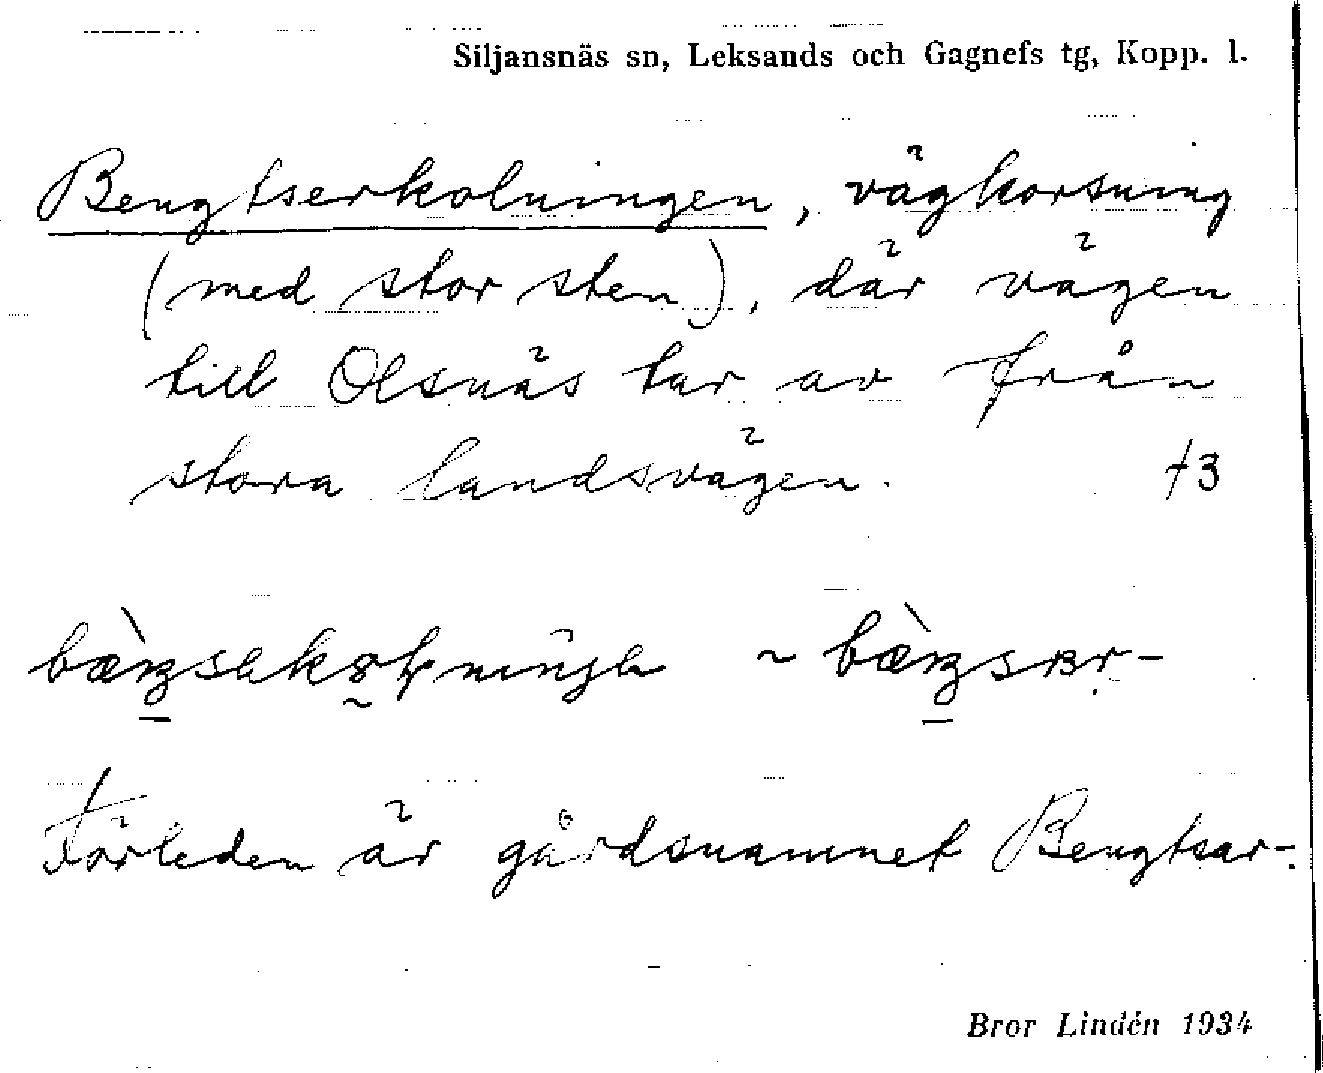 Siljansnäs sn, Leksands och Gagnefs tg, Kopp. l.
Bengtserkolningen, vägkorsning
(med stor sten), där vägen
till Olsnäs tar av från
stora landsvägen. †3
~
Förleden är gårdsnamnet Bengtsar-.
Bror Lindén 1934